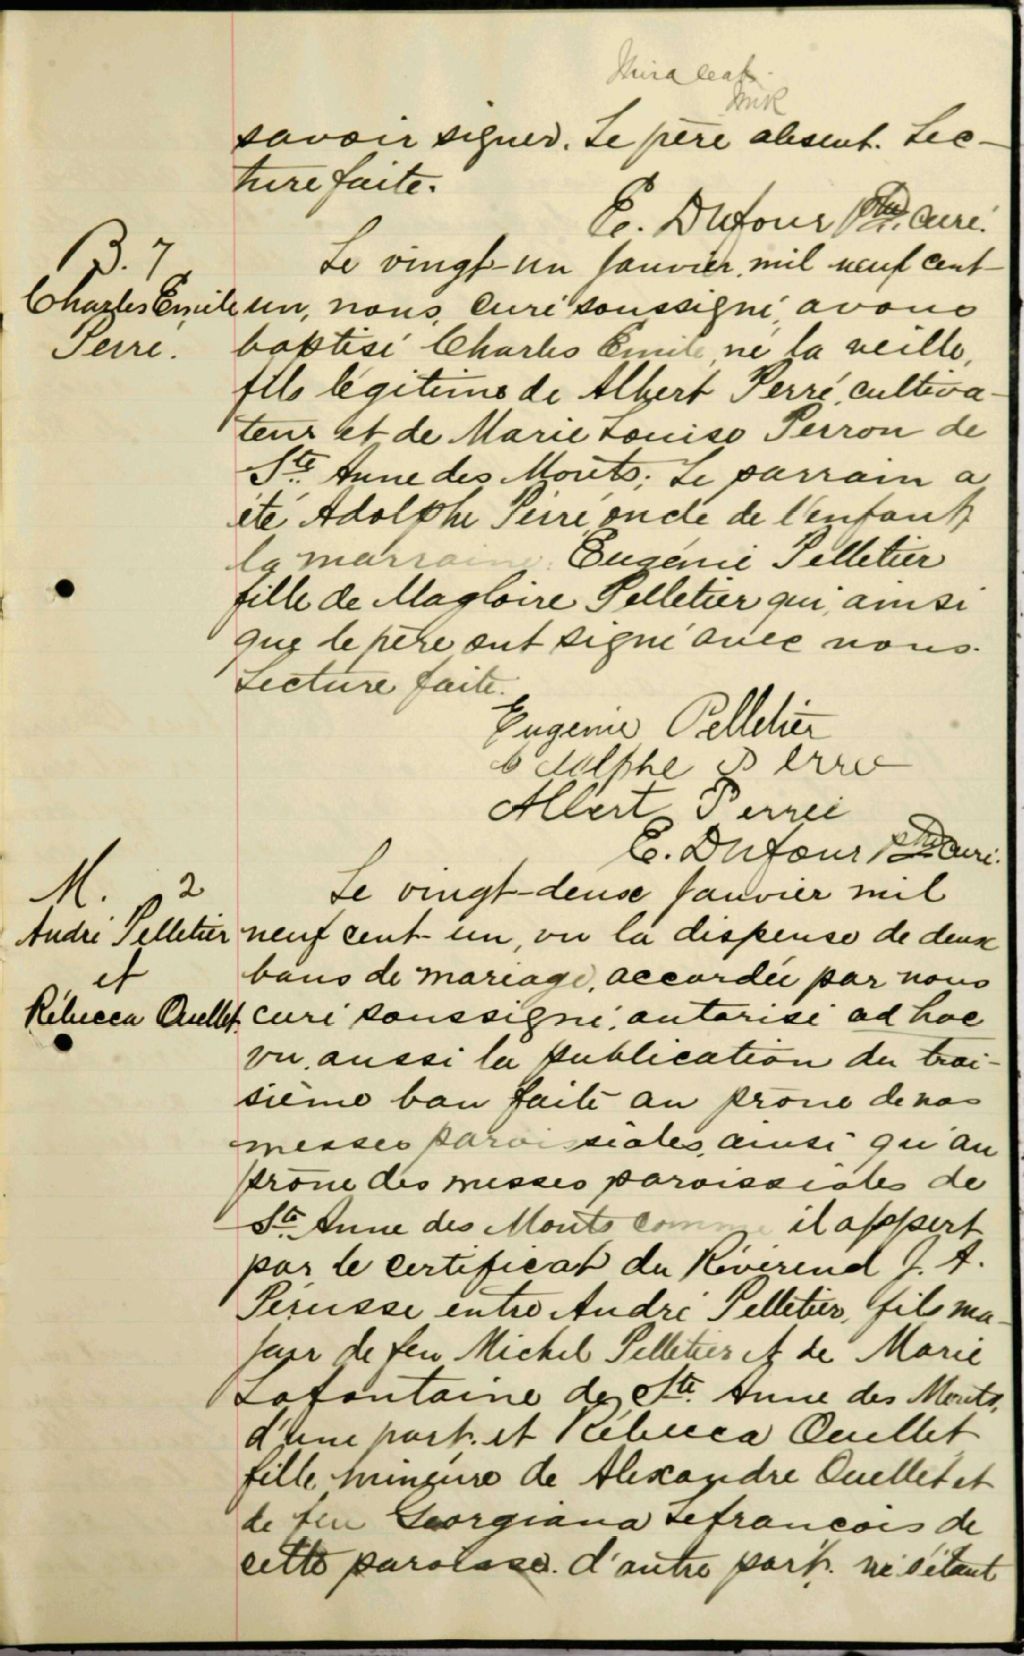 savoir signer. Le père absent. Lec-
ture faite.
E. Dufour Ptre. curé.
B. 7
Charles Émile
Perré.
Le vingt-un janvier, mil neuf cent
un, nous, curé soussigné, avons
baptisé Charles Émile, né la veille,
fils légitime de Albert Perré, cultiva-
teur et de Marie Louise Perron de
Ste. Anne des Monts; Le parrain a
été Adolphe Perré, oncle de l'enfant,
la marraine Eugénie Pelletier
fille de Magloire Pelletier qui, ainsi
que le père ont signé avec nous.
Lecture faite.
Eugenie Pelletier
Adolphe Perré
Albert Perrée
E. Dufour Ptre curé.
M. 2
André Pelletier
et
Rébecca Ouellet.
Le vingt-deux janvier mil
neuf cent un, vu la dispense de deux
bans de mariage, accordée par nous
curé soussigné, autorisé ad hoc
vu aussi la publication du troi-
sième ban faite au prône de nos
messes paroissiales, ainsi qu'au
prône des messes paroissiales de
Ste. Anne des Monts comme il appert
par le certificat du Révérend J. A.
Pérusse entre André Pelletier, fils ma-
jeur de feu Michel Pelletier et de Marie
Lafontaine de Ste. Anne des Monts,
d'une part. et Rébecca Ouellet
fille mineure de Alexandre Ouellet et
de feu Georgiana Lefrançois de
cette paroisse. d'autre part. ne s'étant